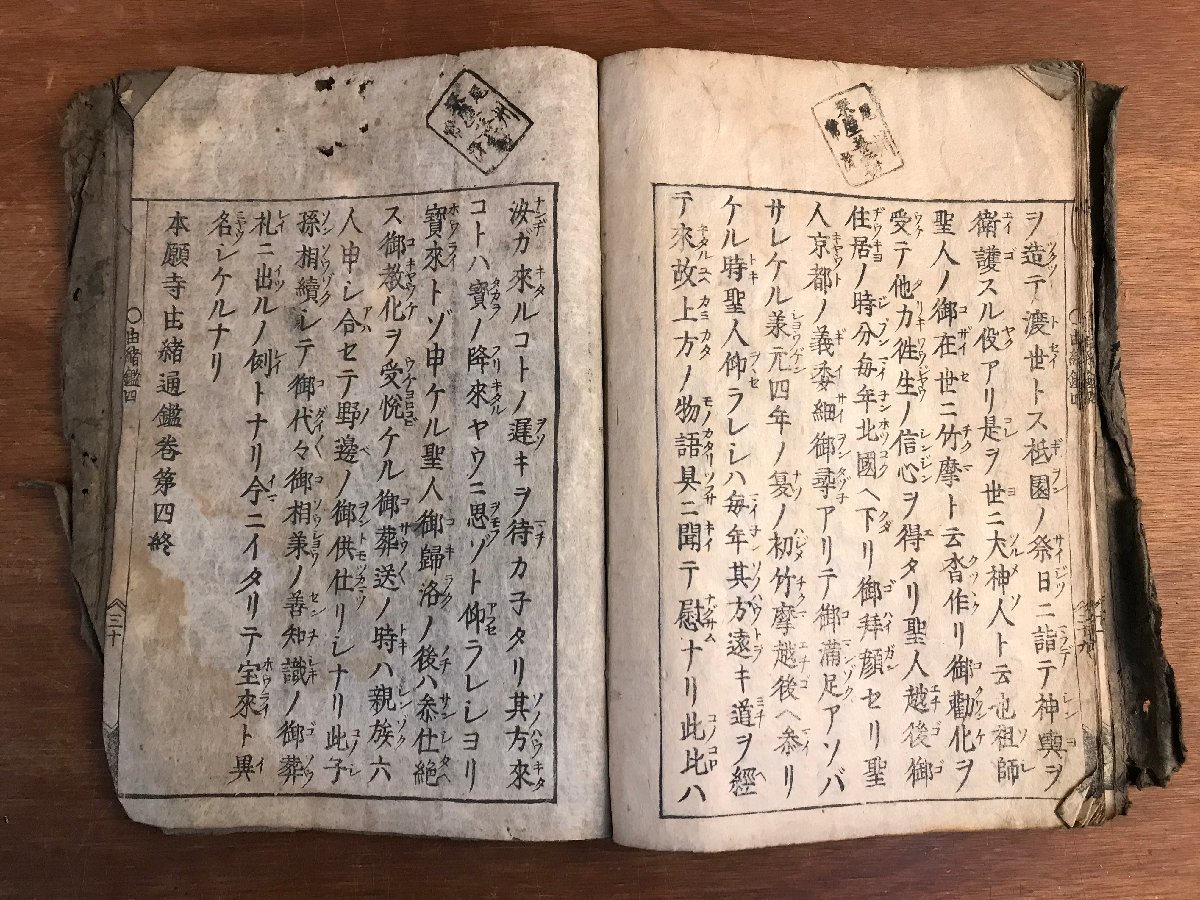 ヲ造テ渡世トス祇園ノ祭日ニ詣テ神輿ヲ
衛護スル役アリ是ヲ世ニ犬神人ト云也祖師
聖人ノ御在世ニ竹摩ト云沓作リ御勸化ヲ
受テ他力徃生ノ信心ヲ得タリ聖人越後御
住居ノ時分毎年北國ヘ下リ御拜顔セリ聖
人京都ノ義委細御尋アリテ御滿足アソバ
サレケル兼元四年ノ夏ノ初竹摩越後ヘ叅リ
ケル時聖人仰ラレシハ毎年其方遠キ道ヲ經
テ來故上方ノ物語具ニ聞テ慰ナリ此比ハ
汝ガ來ルコトノ遲キヲ待カ子タリ其方來
コトハ寶ノ降來ヤウニ思ゾト仰ラレシヨリ
寶來トゾ申ケル聖人御歸洛ノ後ハ叅仕絶
ス御教化ヲ受悅ケル御葬送ノ時ハ親族六
人申シ合セテ野邊ノ御供仕リシナリ此子
孫相續シテ御代々御相兼ノ善知識ノ御葬
礼ニ出ルノ例トナリ今ニイタリテ室來ト異
名シケルナリ
本願寺由緒通鑑卷第四終
○由緒鑑四
三十